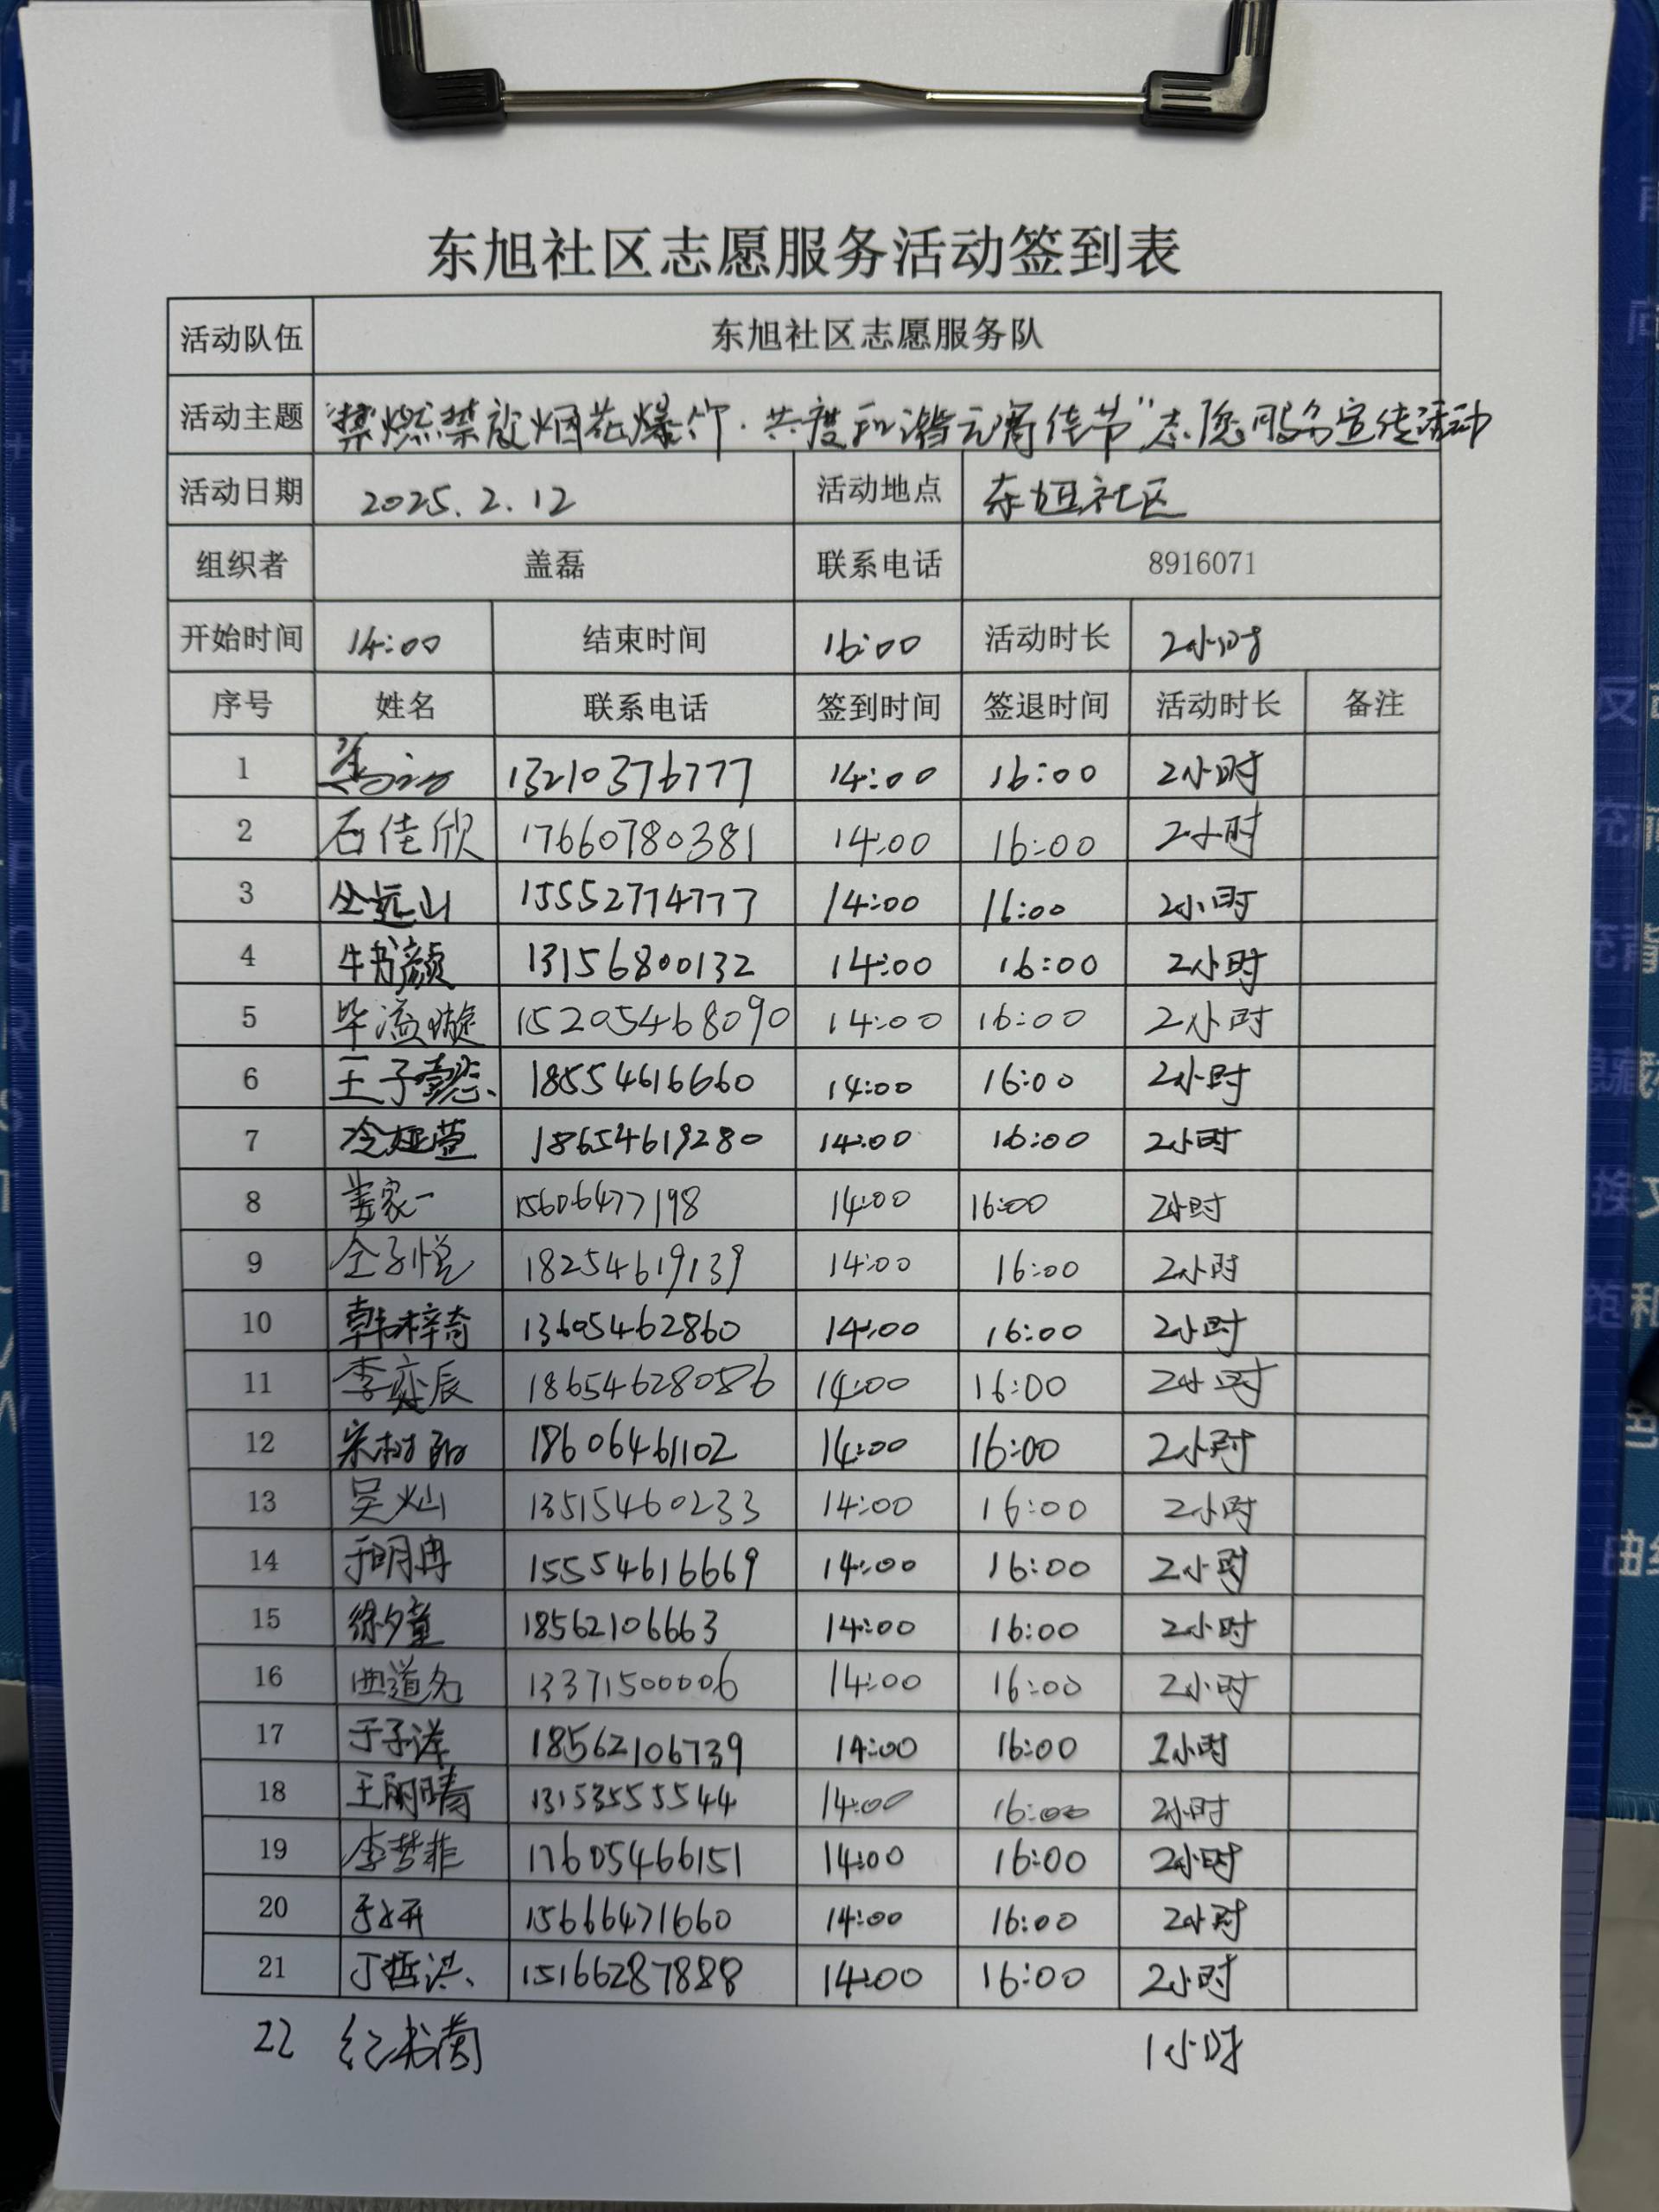 东旭社区志愿服务活动签到表
活动队伍 东旭社区志愿服务队
活动主题 “禁燃禁放烟花爆竹·共度和谐元宵佳节”志愿服务宣传活动
活动日期 2025.2.12 活动地点 东旭社区
组织者 盖磊 联系电话 8916071
开始时间 14:00 结束时间 16:00 活动时长 2小时
序号 姓名 联系电话 签到时间 签退时间 活动时长 备注
1 13210376777 14:00 16:00 2小时
2 石佳欣 17660780381 14:00 16:00 2小时
3 仝远山 15552774777 14:00 16:00 2小时
4 牛书颜 13156800132 14:00 16:00 2小时
5 毕溢璇 15205468090 14:00 16:00 2小时
6 王子懿 18554616660 14:00 16:00 2小时
7 冷娅萱 18654619280 14:00 16:00 2小时
8 姜家一 15606477198 14:00 16:00 2小时
9 仝子悦 18254619139 14:00 16:00 2小时
10 韩梓奇 13605462860 14:00 16:00 2小时
11 李奕辰 18654628086 14:00 16:00 2小时
12 宋树 18606461102 14:00 16:00 2小时
13 吴灿 13515460233 14:00 16:00 2小时
14 于明冉 15554616669 14:00 16:00 2小时
15 徐夕童 18562106663 14:00 16:00 2小时
16 道名 13371500006 14:00 16:00 2小时
17 于子洋 18562106739 14:00 16:00 2小时
18 王丽晴 13153555544 14:00 16:00 2小时
19 李梦菲 17605466151 14:00 16:00 2小时
20 于 15666471660 14:00 16:00 2小时
21 丁哲洪 15166287888 14:00 16:00 2小时
22 纪书菡 1小时